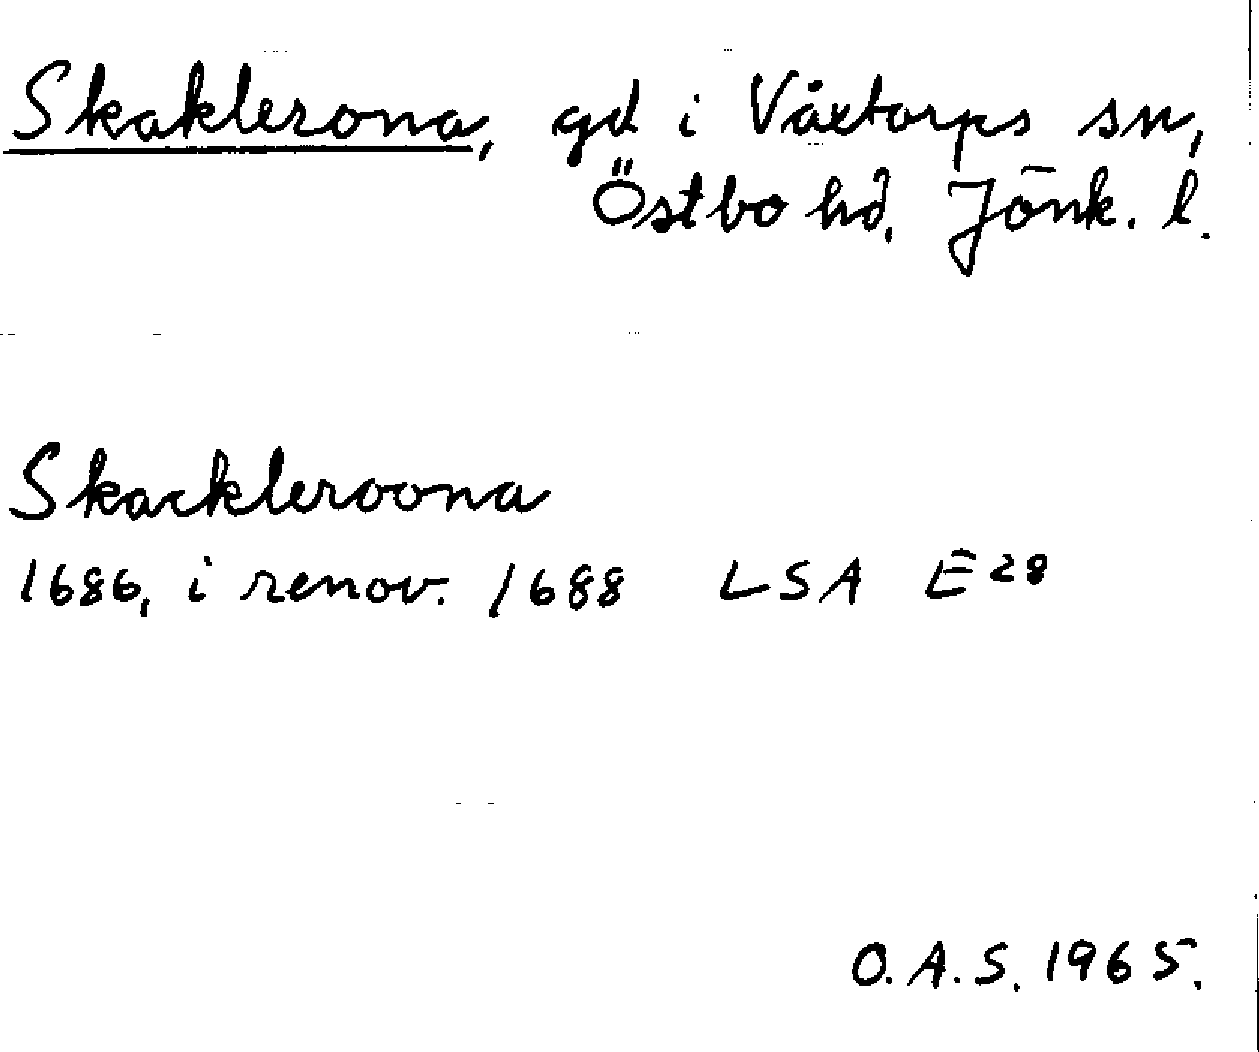 Skaklerona, gd i Våxtorps sn,
Östbo hd. Jönk. l.
Skackleroona
1686, i renov. 1688 LSA E 28
O.A.S. 1965.